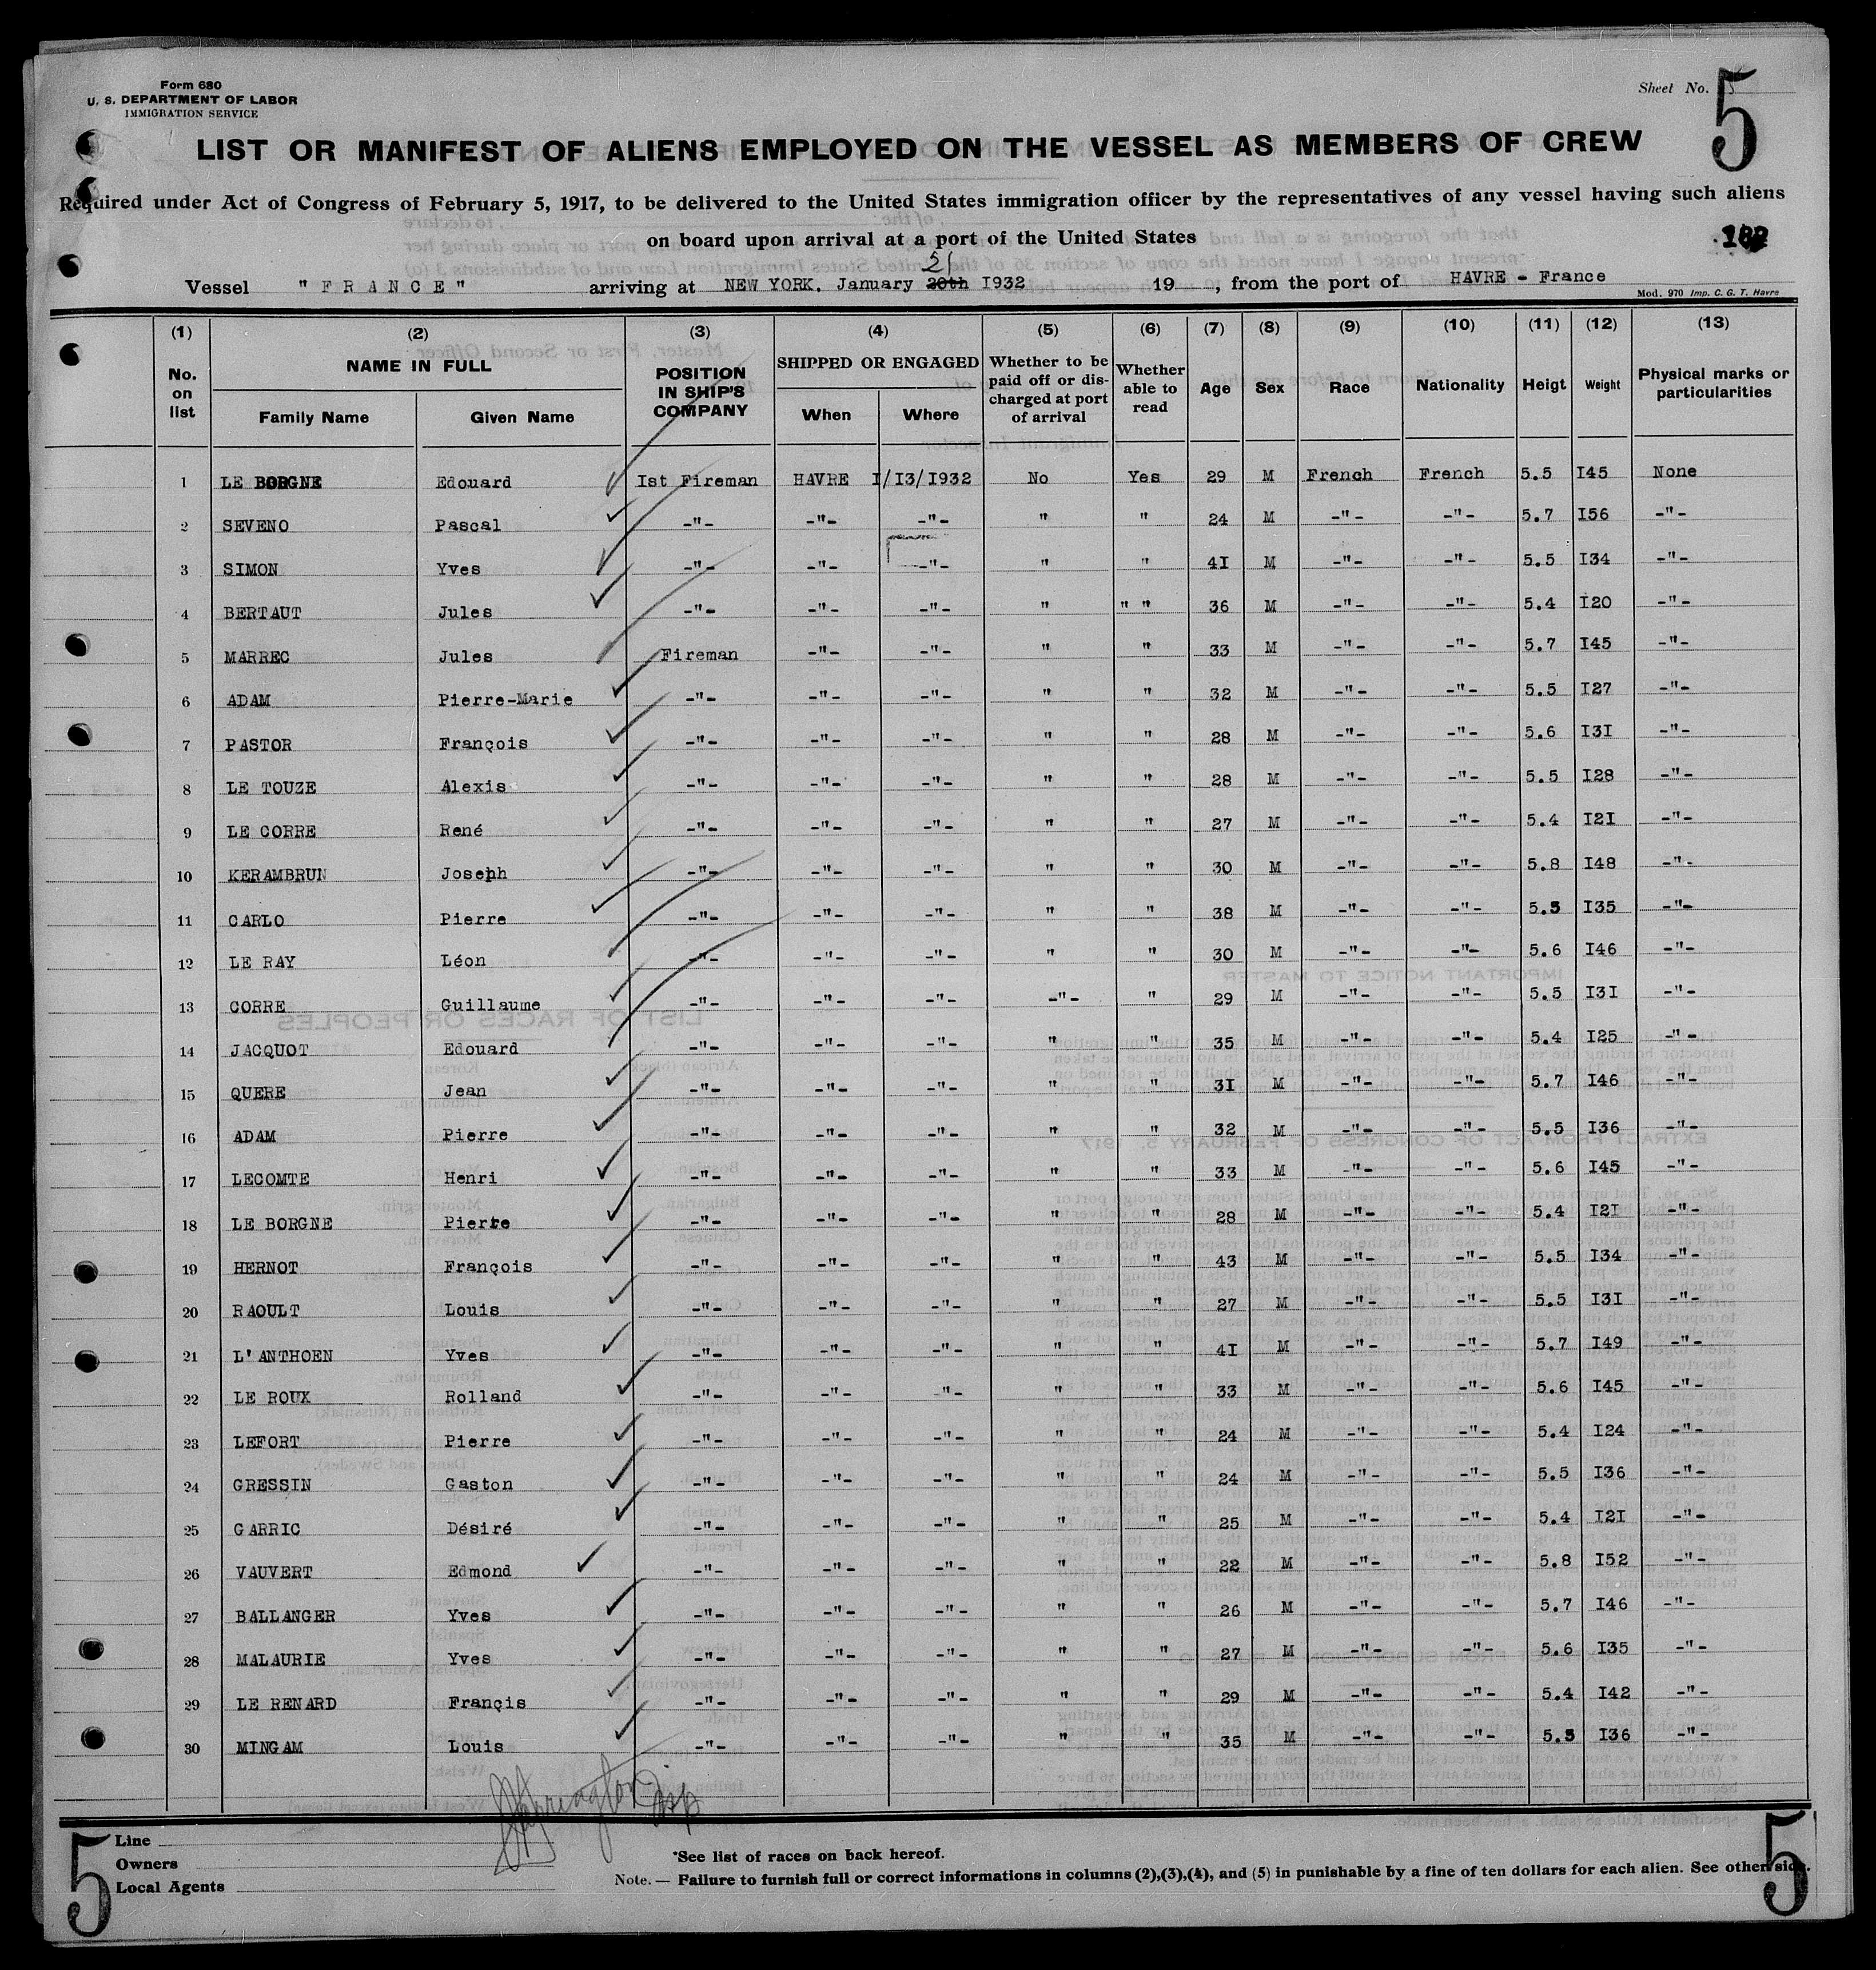 Form 680
U. S. DEPARTMENT OF LABOR
IMMIGRATION SERVICE
Sheet No. 5
LIST OR MANIFEST OF ALIENS EMPLOYED ON THE VESSEL AS MEMBERS OF CREW
Required under Act of Congress of February 5, 1917, to be delivered to the United States immigration officer by the representatives of any vessel having such aliens
on board upon arrival at a port of the United States
21
Vessel "FRANCE" arriving at NEW YORK. January 20th I932 19 , from the port of HAVRE - France
Mod. 970 Imp. C. G. T. Havre
(1) (2) (3) (4) (5) (6) (7) (8) (9) (10) (11) (12) (13)
No. on list NAME IN FULL Family Name Given Name POSITION IN SHIP'S COMPANY SHIPPED OR ENGAGED When Where Whether to be paid off or dis-charged at port of arrival Whether able to read Age Sex Race Nationality Heigt Weight Physical marks or particularities
1 LE BORGNE Edouard Ist Fireman HAVRE I/I3/I932 No Yes 29 M French French 5.5 I45 None
2 SEVENO Pascal -"- -"- -"- " " 24 M -"- -"- 5.7 I56 -"-
3 SIMON Yves -"- -"- -"- " " 4I M -"- -"- 5.5 I34 -"-
4 BERTAUT Jules -"- -"- -"- " " " 36 M -"- -"- 5.4 I20 -"-
5 MARREC Jules Fireman -"- -"- " " 33 M -"- -"- 5.7 I45 -"-
6 ADAM Pierre-Marie -"- -"- -"- " " 32 M -"- -"- 5.5 I27 -"-
7 PASTOR François -"- -"- -"- " " 28 M -"- -"- 5.6 I3I -"-
8 LE TOUZE Alexis -"- -"- -"- " " 28 M -"- -"- 5.5 I28 -"-
9 LE CORRE René -"- -"- -"- " " 27 M -"- -"- 5.4 I2I -"-
10 KERAMBRUN Joseph -"- -"- -"- " " 30 M -"- -"- 5.8 I48 -"-
11 CARLO Pierre -"- -"- -"- " " 38 M -"- -"- 5.5 I35 -"-
12 LE RAY Léon -"- -"- -"- " " 30 M -"- -"- 5.6 I46 -"-
13 CORRE Guillaume -"- -"- -"- -"- " 29 M -"- -"- 5.5 I3I -"-
14 JACQUOT Edouard -"- -"- -"- " " 35 M -"- -"- 5.4 I25 -"-
15 QUERE Jean -"- -"- -"- " " 3I M -"- -"- 5.7 I46 -"-
16 ADAM Pierre -"- -"- -"- " " 32 M -"- -"- 5.5 I36 -"-
17 LECOMTE Henri -"- -"- -"- " " 33 M -"- -"- 5.6 I45 -"-
18 LE BORGNE Pierre -"- -"- -"- " " 28 M -"- -"- 5.4 I2I -"-
19 HERNOT François -"- -"- -"- " " 43 M -"- -"- 5.5 I34 -"-
20 RAOULT Louis -"- -"- -"- " " 27 M -"- -"- 5.5 I3I -"-
21 L'ANTHOEN Yves -"- -"- -"- " " 4I M -"- -"- 5.7 I49 -"-
22 LE ROUX Rolland -"- -"- -"- " " 33 M -"- -"- 5.6 I45 -"-
23 LEFORT Pierre -"- -"- -"- " " 24 M -"- -"- 5.4 I24 -"-
24 GRESSIN Gaston -"- -"- -"- " " 24 M -"- -"- 5.5 I36 -"-
25 GARRIC Désiré -"- -"- -"- " " 25 M -"- -"- 5.4 I2I -"-
26 VAUVERT Edmond -"- -"- -"- " " 22 M -"- -"- 5.8 I52 -"-
27 BALLANGER Yves -"- -"- -"- " " 26 M -"- -"- 5.7 I46 -"-
28 MALAURIE Yves -"- -"- -"- " " 27 M -"- -"- 5.6 I35 -"-
29 LE RENARD Françis -"- -"- -"- " " 29 M -"- -"- 5.4 I42 -"-
30 MINGAM Louis -"- -"- -"- " " 35 M -"- -"- 5.5 I36 -"-
5 5
Line
Owners
Local Agents
*See list of races on back hereof.
Note. — Failure to furnish full or correct informations in columns (2),(3),(4), and (5) in punishable by a fine of ten dollars for each alien. See other side.